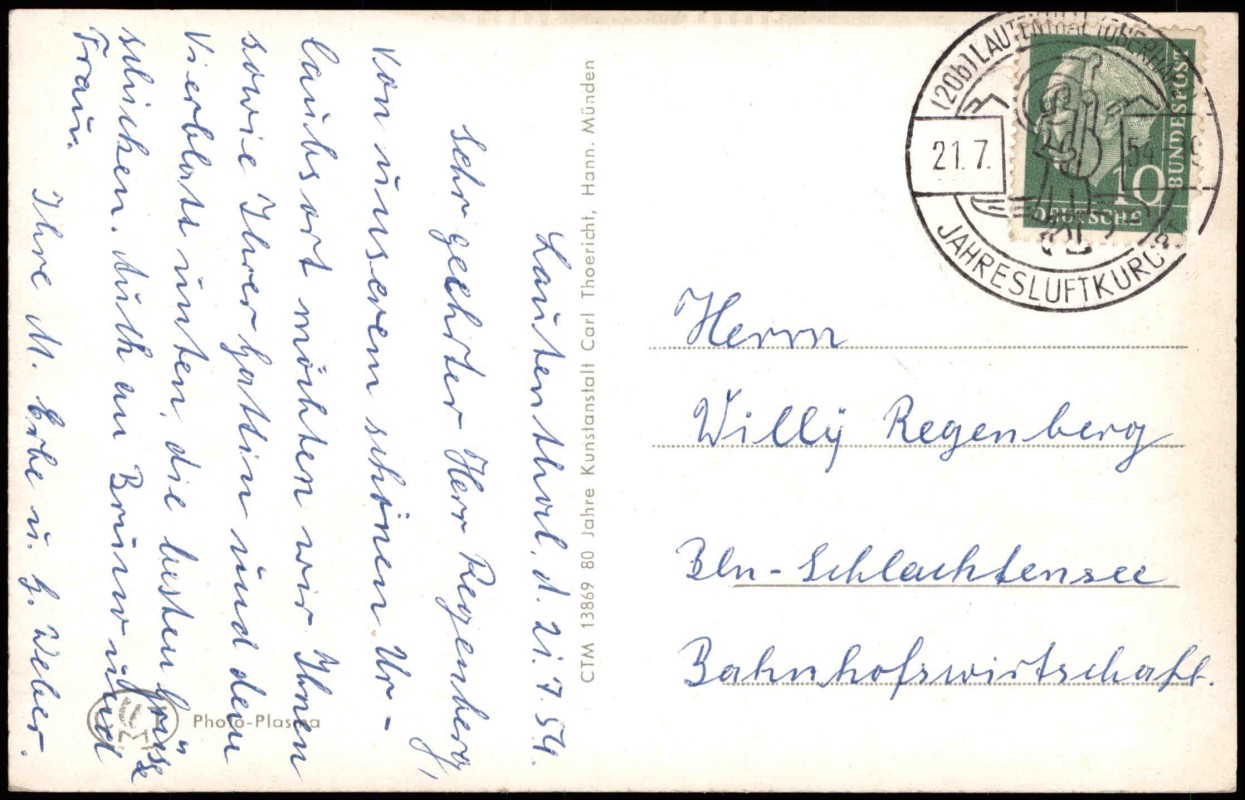 Lautenthal, d. 21.7.54.
Sehr geehrter Herr Regenberg,
Von unserem schönen Ur-
laubsort möchten wir Ihnen
sowie Ihrer Gattin und dem
Vierblatt unten, die besten Grüsse
schicken. Auch an Bruno und
Frau.
Ihre M. Erbe u. G. Weber.
CTM 13869 80 Jahre Kunstanstalt Carl Thoericht, Hann. Münden
Photo-Plasma
(20b) LAUTENTHAL (OBERHARZ)
21.7. 54
JAHRESLUFTKURORT
10
DEUTSCHE
BUNDESPOST
Herrn
Willÿ Regenberg
Bln-Schlachtensee
Bahnhofswirtschaft.